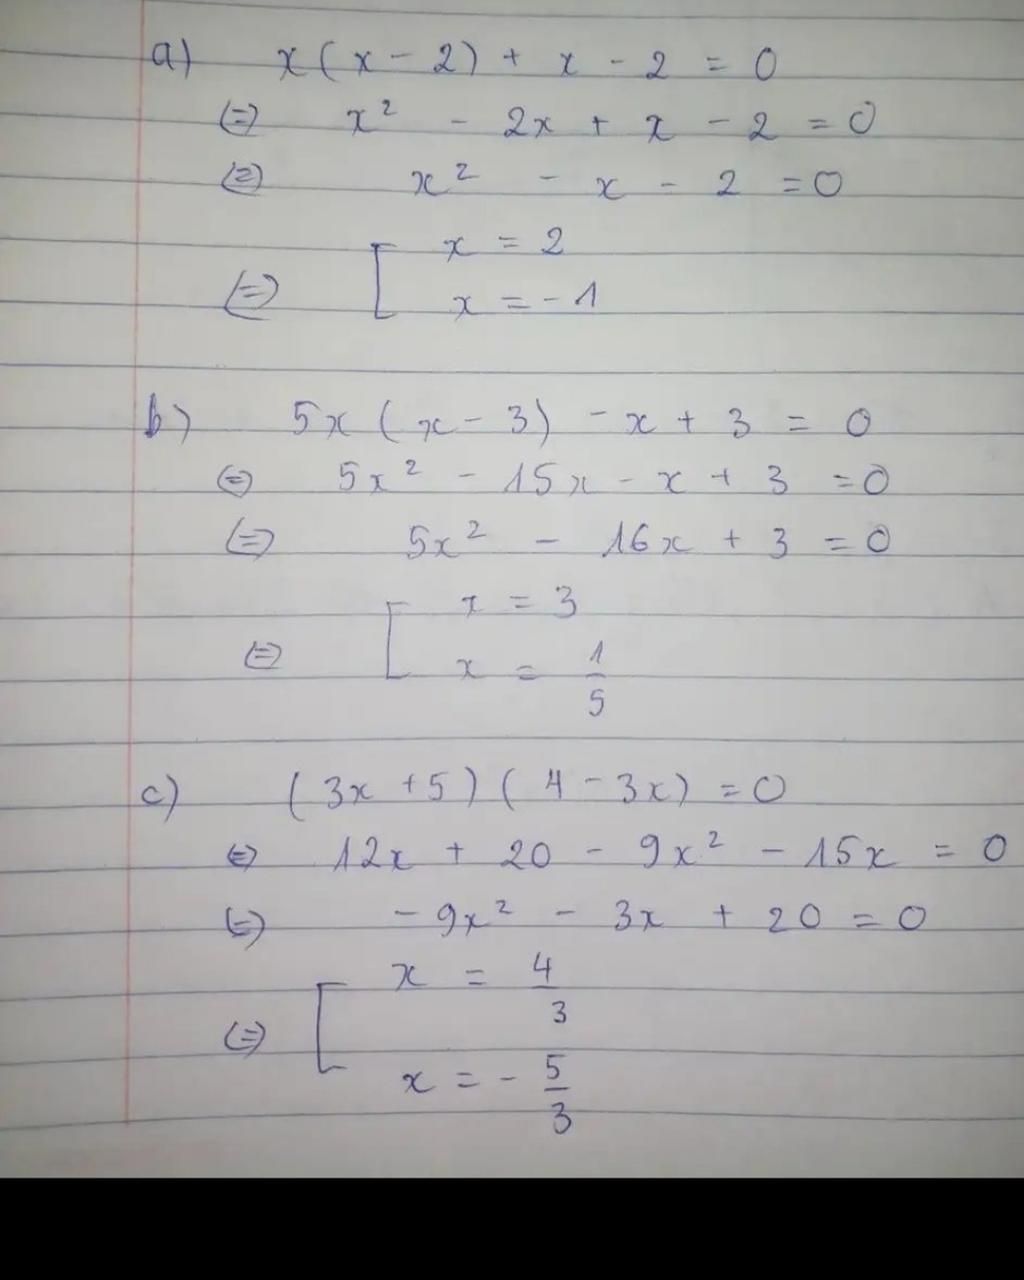 a) x(x - 2) + x - 2 = 0
(=) x² - 2x + x - 2 = 0
(=) x² - x - 2 = 0
(=) [ x = 2
x = -1
b) 5x(x - 3) - x + 3 = 0
(=) 5x² - 15x - x + 3 = 0
(=) 5x² - 16x + 3 = 0
(=) [ x = 3
x = 1/5
c) (3x + 5)(4 - 3x) = 0
(=) 12x + 20 - 9x² - 15x = 0
(=) -9x² - 3x + 20 = 0
(=) [ x = 4/3
x = -5/3